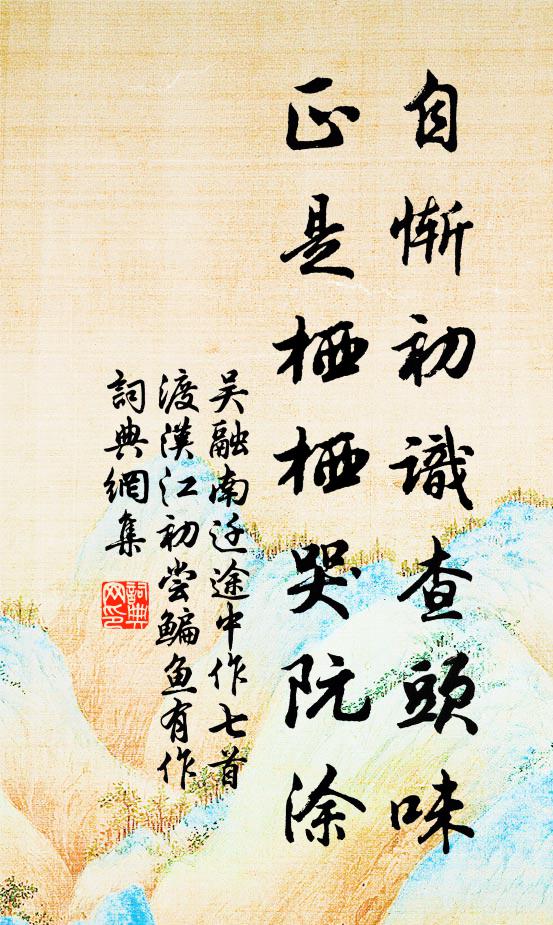 自慚初識查頭味
正是栖栖哭阮涂
吴融南迁途中作七首
渡漢江初尝鳊鱼有作
詞典網集
詞典
网印